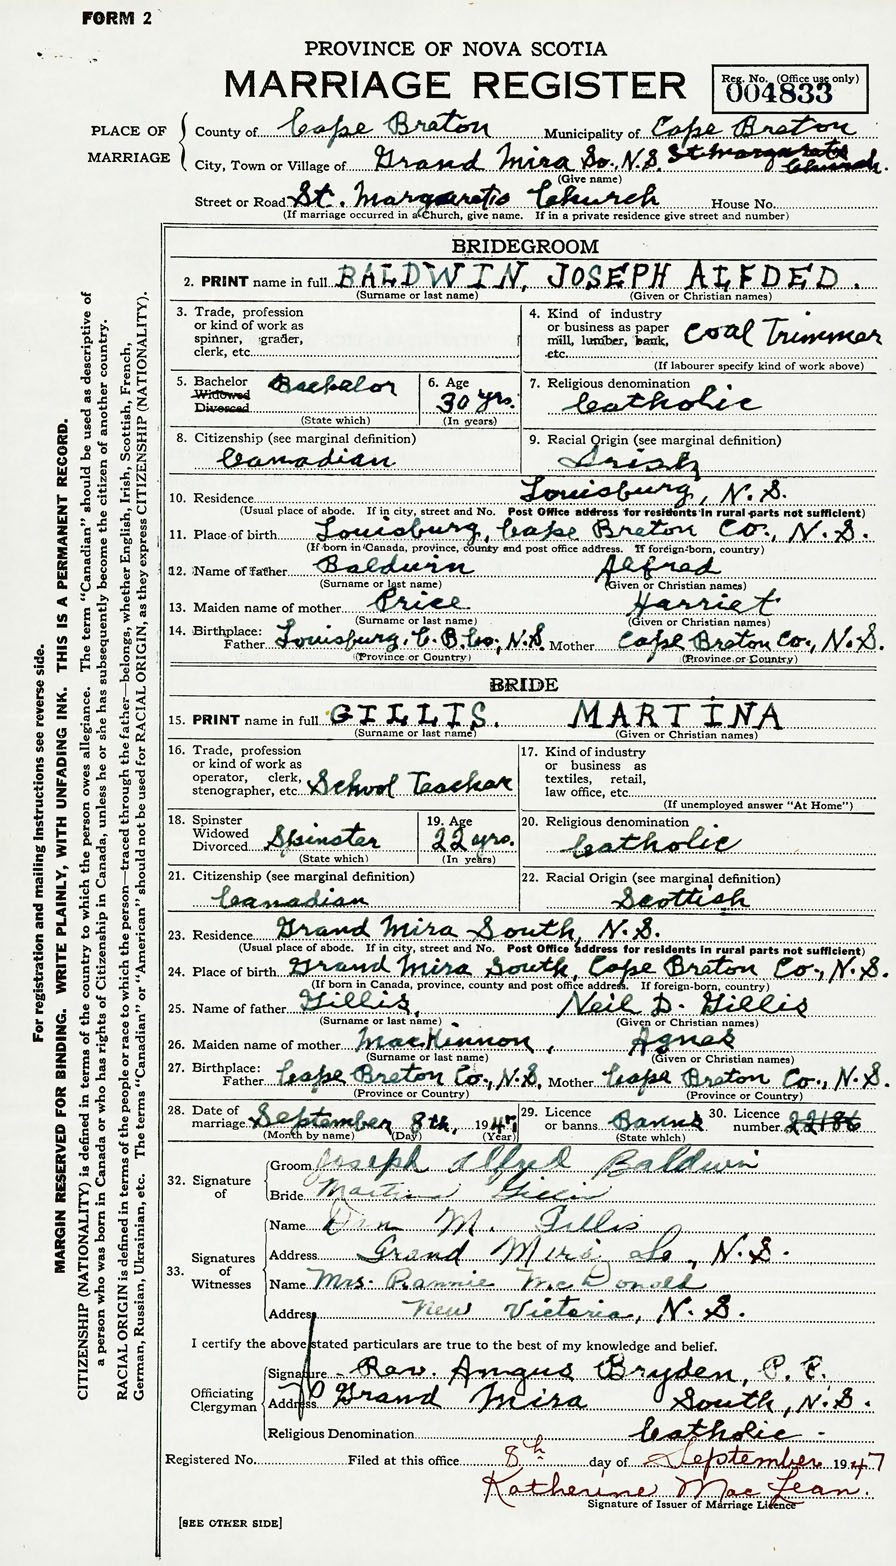 FORM 2
PROVINCE OF NOVA SCOTIA
MARRIAGE REGISTER
Reg. No. (Office use only)
004833
PLACE OF MARRIAGE
County of Cape Breton Municipality of Cape Breton
City, Town or Village of Grand Mira So., N.S. St Margarets Church.
(Give name)
Street or Road St. Margarets Church House No.
(If marriage occurred in a Church, give name. If in a private residence give street and number)
BRIDEGROOM
2. PRINT name in full BALDWIN, JOSEPH ALFDED.
(Surname or last name) (Given or Christian names)
3. Trade, profession
or kind of work as
spinner, grader,
clerk, etc.
4. Kind of industry
or business as paper
mill, lumber, bank,
etc. Coal Trimmer
(If labourer specify kind of work above)
5. Bachelor
Widowed
Divorced
Bachelor
(State which)
6. Age
30 yrs.
(In years)
7. Religious denomination
Catholic
8. Citizenship (see marginal definition)
Canadian
9. Racial Origin (see marginal definition)
Irish
10. Residence Louisburg, N.S.
(Usual place of abode. If in city, street and No. Post Office address for residents in rural parts not sufficient)
11. Place of birth Louisburg, Cape Breton Co., N.S.
(If born in Canada, province, county and post office address. If foreign-born, country)
12. Name of father Baldwin Alfred
(Surname or last name) (Given or Christian names)
13. Maiden name of mother Price Harriet
(Surname or last name) (Given or Christian names)
14. Birthplace:
Father Louisburg, C.B.Co., N.S. Mother Cape Breton Co., N.S.
(Province or Country) (Province or Country)
BRIDE
15. PRINT name in full GILLIS. MARTINA
(Surname or last name) (Given or Christian names)
16. Trade, profession
or kind of work as
operator, clerk,
stenographer, etc. School Teacher
17. Kind of industry
or business as
textiles, retail,
law office, etc.
(If unemployed answer "At Home")
18. Spinster
Widowed
Divorced Spinster
(State which)
19. Age
22 yrs.
(In years)
20. Religious denomination
Catholic
21. Citizenship (see marginal definition)
Canadian
22. Racial Origin (see marginal definition)
Scottish
23. Residence Grand Mira South, N.S.
(Usual place of abode. If in city, street and No. Post Office address for residents in rural parts not sufficient)
24. Place of birth Grand Mira South, Cape Breton Co., N.S.
(If born in Canada, province, county and post office address. If foreign-born, country)
25. Name of father Gillis, Neil D. Gillis
(Surname or last name) (Given or Christian names)
26. Maiden name of mother MacKinnon, Agnes
(Surname or last name) (Given or Christian names)
27. Birthplace:
Father Cape Breton Co., N.S. Mother Cape Breton Co., N.S.
(Province or Country) (Province or Country)
28. Date of
marriage September 8th, 1947
(Month by name) (Day) (Year)
29. Licence
or banns Banns
(State which)
30. Licence
number 22186
32. Signature of
Groom Joseph Alfred Baldwin
Bride Martina Gillis
33. Signatures of Witnesses
Name Dan M. Gillis
Address Grand Mira So, N.S.
Name Mrs. Rannie McDonald
Address New Victoria, N.S.
I certify the above stated particulars are true to the best of my knowledge and belief.
Officiating Clergyman
Signature Rev. Angus Bryden, P.P.
Address Grand Mira South, N.S.
Religious Denomination Catholic
Registered No. Filed at this office 8th day of September 1947
Katherine MacLean.
Signature of Issuer of Marriage Licence
[SEE OTHER SIDE]
For registration and mailing instructions see reverse side.
MARGIN RESERVED FOR BINDING. WRITE PLAINLY, WITH UNFADING INK. THIS IS A PERMANENT RECORD.
CITIZENSHIP (NATIONALITY) is defined in terms of the country to which the person owes allegiance. The term "Canadian" should be used as descriptive of
a person who was born in Canada or who has rights of Citizenship in Canada, unless he or she has subsequently become the citizen of another country.
RACIAL ORIGIN is defined in terms of the people or race to which the person—traced through the father—belongs, whether English, Irish, Scottish, French,
German, Russian, Ukrainian, etc. The terms "Canadian" or "American" should not be used for RACIAL ORIGIN, as they express CITIZENSHIP (NATIONALITY).